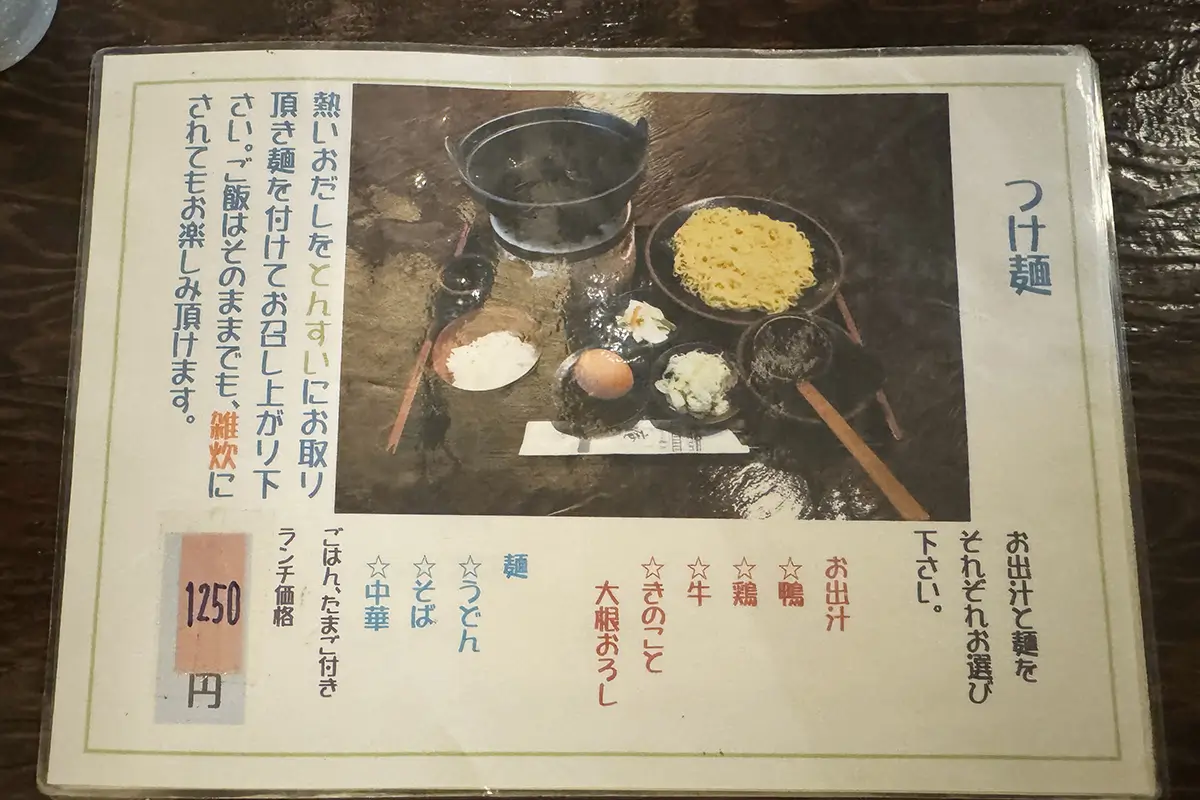 つけ麺
熱いおだしをとんすいにお取り
頂き麺を付けてお召し上がり下
さい。ご飯はそのままでも、雑炊に
されてもお楽しみ頂けます。
お出汁と麺を
それぞれお選び
下さい。
お出汁
☆鴨
☆鶏
☆牛
☆きのこと
大根おろし
麺
☆うどん
☆そば
☆中華
ごはん、たまご付き
ランチ価格
1250
円